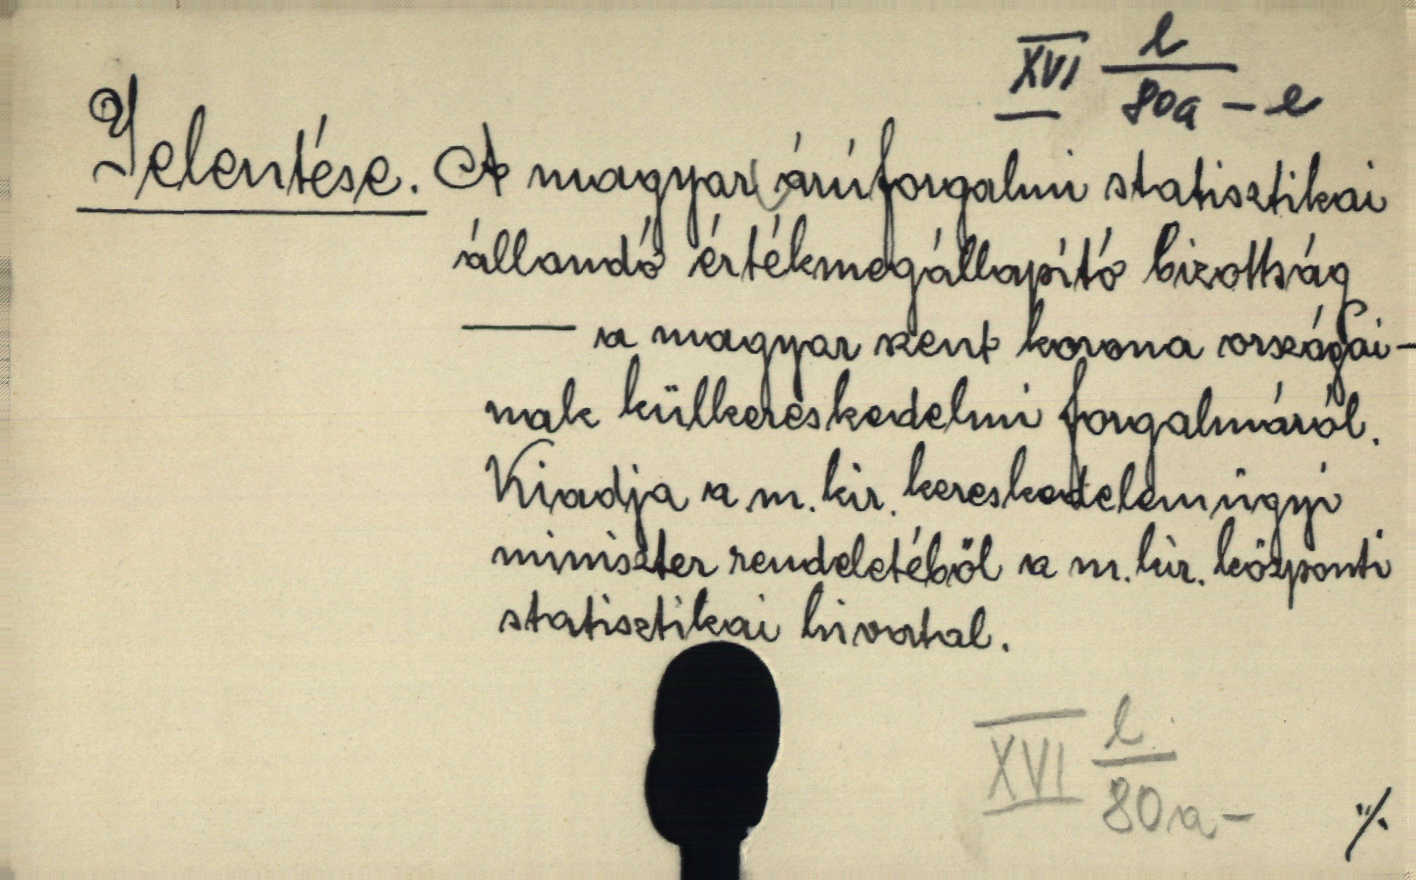 XVI l/80a - e
Jelentése. A magyar árúforgalmi statisztikai
állandó értékmegállapító bizottság
—— a magyar szent korona országai-
nak külkereskedelmi forgalmáról.
Kiadja a m. kir. kereskedelemügyi
miniszter rendeletéből a m. kir. központi
statisztikai hivatal.
XVI l/80a -